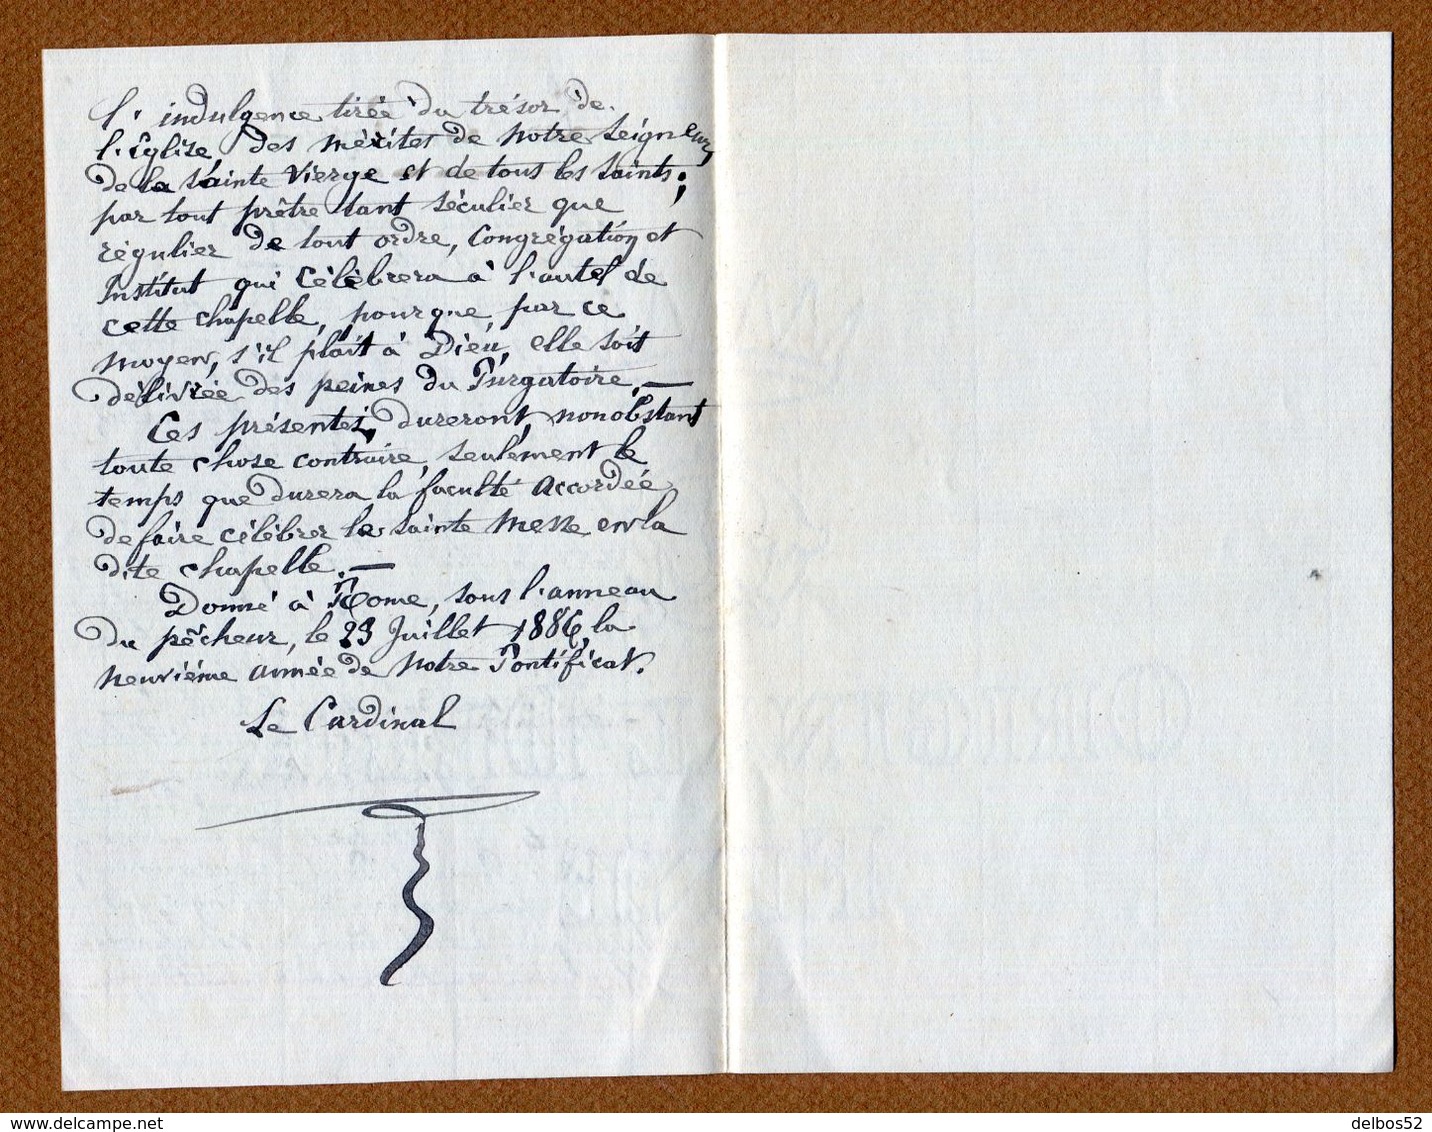 l'indulgence tirée du trésor de
l'Église, des mérites de Notre Seigneur,
de la Sainte Vierge et de tous les Saints;
par tout prêtre tant séculier que
régulier de tout ordre, Congrégation et
Institut qui célébrera à l'autel de
cette chapelle, pour que par ce
moyen, s'il plaît à Dieu, elle soit
délivrée des peines du Purgatoire. —
Ces présentes, dureront, nonobstant
toute chose contraire, seulement le
temps que durera la faculté accordée
de faire célébrer la Sainte Messe en la
dite chapelle. —
Donné à Rome, sous l'anneau
du pêcheur, le 23 Juillet 1886, la
neuvième année de Notre Pontificat.
Le Cardinal
delbos52